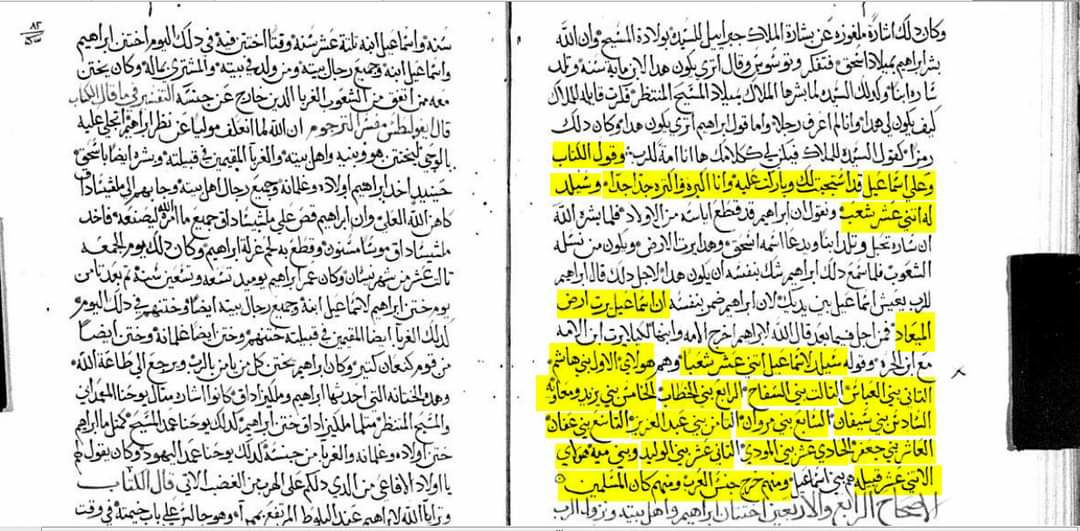 وكان ذلك اشارة ملغوزة عن بشارة الملاك جبراييل للسيده بولادة المسيح وان الله
بشر ابراهيم بميلاد اسحق فتفكر وقال اترى يكون هدا لابن ماية سنه وتلد
ساره ابنا وكدلك السيده لما بشرها الملاك بميلاد المسيح المنتظر فكرت قايله للملاك
كيف يكون لي هدا وانا لم اعرف رجلا واما قول ابراهيم اترى يكون هدا وكان دلك
رمزا كقول السيده للملاك فيكن لي كلامك ها انا امة للرب وقول الكتاب
وعلي اسماعيل قد استجبت لك وباركت عليه وانا اكبره واكتره جدا جدا وسيلد
له اتني عشر شعب ونقول ان ابراهيم قد قطع من الاولاد فلما بشره الله
ان ساره تحبل وتلد ابنا ويدعا اسمه اسحق وهدا يرت الارض ويكون من نسله
الشعوب فلما سمع دلك ابراهيم شك بنفسه ان يكون هدا لاجل دلك قال ابراهيم
للرب يعيش اسماعيل بين يديك لان ابراهيم ضمن بنفسه ان اسماعيل يرت ارض
الميعاد فمن اجل قال الله لابراهيم اخرج الامه وابنها ليلا يرت ابن الامه
مع ابن الحره وقوله سيلد لاسماعيل اتني عشر شعبا وهم هولاي الاول بني هاشم
التاني بني العباس التالت بني السفاح الرابع بني الخطاب الخامس بني يزيد ومعاويه
السادس بني سيفان السابع بني مروان التامن بني عبد العزيز التاسع بني عفان
العاشر بني جعفر الحادي عشر بني المودي التاني عشر بني الوليد وبني ميه هولاي
الاتني عشر قبيله هم بني اسماعيل ومنهم خرج جنس العرب ومنهم كان المسلمين
الاصحاح الرابع والاربعين اختتان ابراهيم واهل بيته ونزول الرب
٨٢
سنه واسماعيل ابنه تلتة عشر سنه وقتا اختتن فيه في دلك اليوم اختتن ابراهيم
واسماعيل ابنه وجميع رجال بيته ومن ولد في بيته والمشتري بماله وكان يختن
معه من اتفق من الشعوب الغربا الدين خارج عن جنسه التفسير في ما قال الكتاب
قال مفسر الترجوم ان الله لما انعطف موليا عن نظر ابراهيم عليه
بالوحي ليختتن هو وبنيه واهل بيته والغربا المقيمين في قبيلته وبشره ايضا باسحق
حينيد اخد ابراهيم اولاده وغلمانه وجميع رجال اهل بيته وجا بهم الى ملشيساداق
كاهن الله العلي وان ابراهيم قص على ملشيساداق جميع ما امره الله ليصنعه فاخد
ملشيساداق موسا مسنون وقطع به لحم غرلة ابراهيم وكان دلك يوم الجمعه
تالت عشر من شهر نيسان وكان عمر ابراهيم يوميد تسعه وتسعين سنه تم بعد تامن
يوم ختن ابراهيم لاسماعيل ابنه وجميع رجال بيته ايضا وختنهم في دلك اليوم
كدلك الغربا ايضا المقيمين في قبيلته ختنهم وختن ايضا غلمانه وختن ايضا
من قوم كنعان كتير وكان ابراهيم يختن كل من يامن بالرب ويرجع الى طاعة الله
وهده الختانه التي اخدها ابراهيم وملكيزاداق كانوا اشاره متال يوحنا المعمدان
والمسيح المنتظر متلما ملكيزاداق ختن ابراهيم كدلك يوحنا عمد المسيح كمتل ما ابراهيم
ختن اولاده وغلمانه والغربا من جنسه كدلك يوحنا عمد اليهود وكان يقول لهم
يا اولاد الافاعي من الدي دلكم على الهرب من الغضب الاتي قال الكتاب
وترايا الله لابراهيم عند البلوط وهو جالس على باب خيمته في وقت